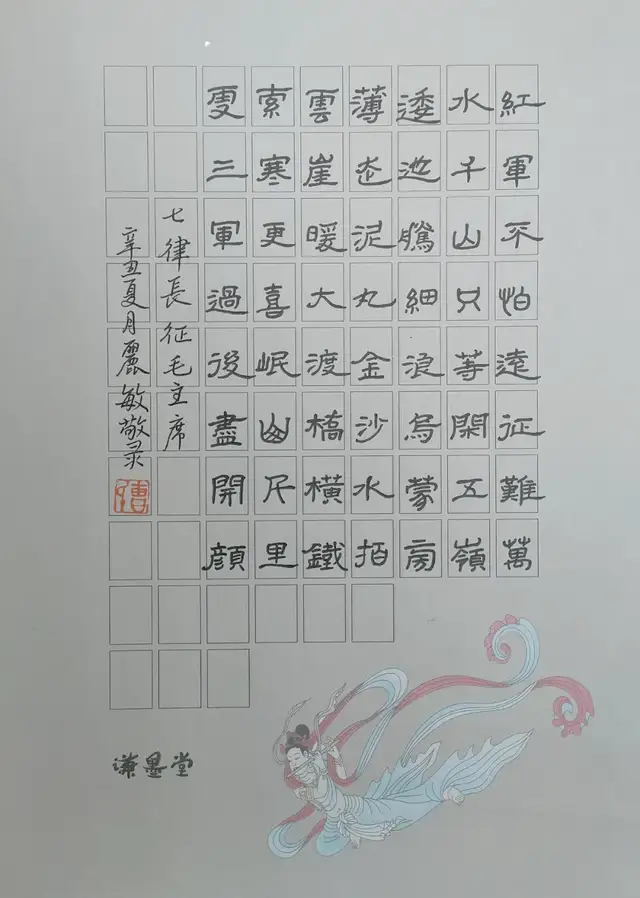 紅軍不怕遠征難萬
水千山只等閑五嶺
逶迤騰細浪烏蒙旁
薄走泥丸金沙水拍
雲崖暖大渡橋橫鐵
索寒更喜岷山千里
雪三軍過後盡開顔
七律長征毛主席
辛丑夏月麗敏敬录
墨堂